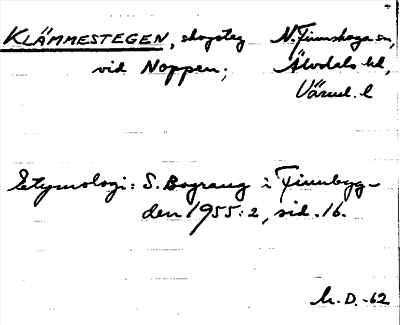 KLÄMMESTEGEN, skogsteg N. Finnskoga sn,
vid Noppen; Älvdals hd,
Värml. l
Etymologi: S. Bograng i Finnbyg-
den 1955:2, sid. 16.
M. D. -62